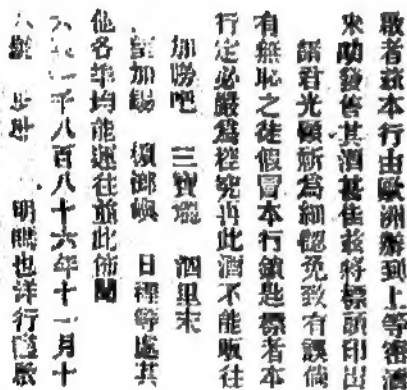 啟者茲本行由歐洲辦到上等酒
來助發售其酒甚佳茲將標頭印出
諸君光顧祈為細認免致有誤倘
有無恥之徒假冒本行鎖匙標者本
行定必嚴為控究再此酒不能販往
加嘮吧　三寶壠　泗里末
加錫　檳榔嶼　日裡等處其
他各埠均能運往前此佈聞
一千八百八十六年十一月十
明也洋行謹啟